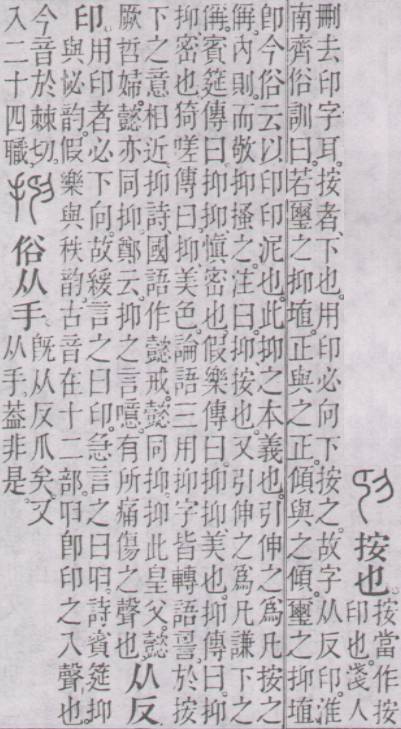 按也。按當作按
印也。淺人
刪去印字耳。按者、下也。用印必向下按之。故字从反印。淮
南齊俗訓曰。若璽之抑埴。正與之正。傾與之傾。璽之抑埴
卽今俗云以印印泥也。此抑之本義也。引伸之爲凡按之
偁。內則。而敬抑搔之。注曰。抑、按也。又引伸之爲凡謙下之
偁。賓筵傳曰。抑抑、愼密也。假樂傳曰。抑抑、美也。抑傳曰。抑
抑、密也。猗嗟傳曰。抑、美色。論語三用抑字。皆轉語䛐。於按
下之意相近。抑詩、國語作懿戒。懿同抑。抑此皇父。懿
厥哲婦。懿亦同抑。鄭云。抑之言噫。有所痛傷之聲也。从反
印。用印者必下向。故緩言之曰印。急言之曰𢑏。詩賓筵抑
與怭韵。假樂與秩韵。古音在十二部。𢑏卽印之入聲也。
今音於棘切。
入二十四職。
俗从手。旣从反爪矣。又
从手。葢非是。